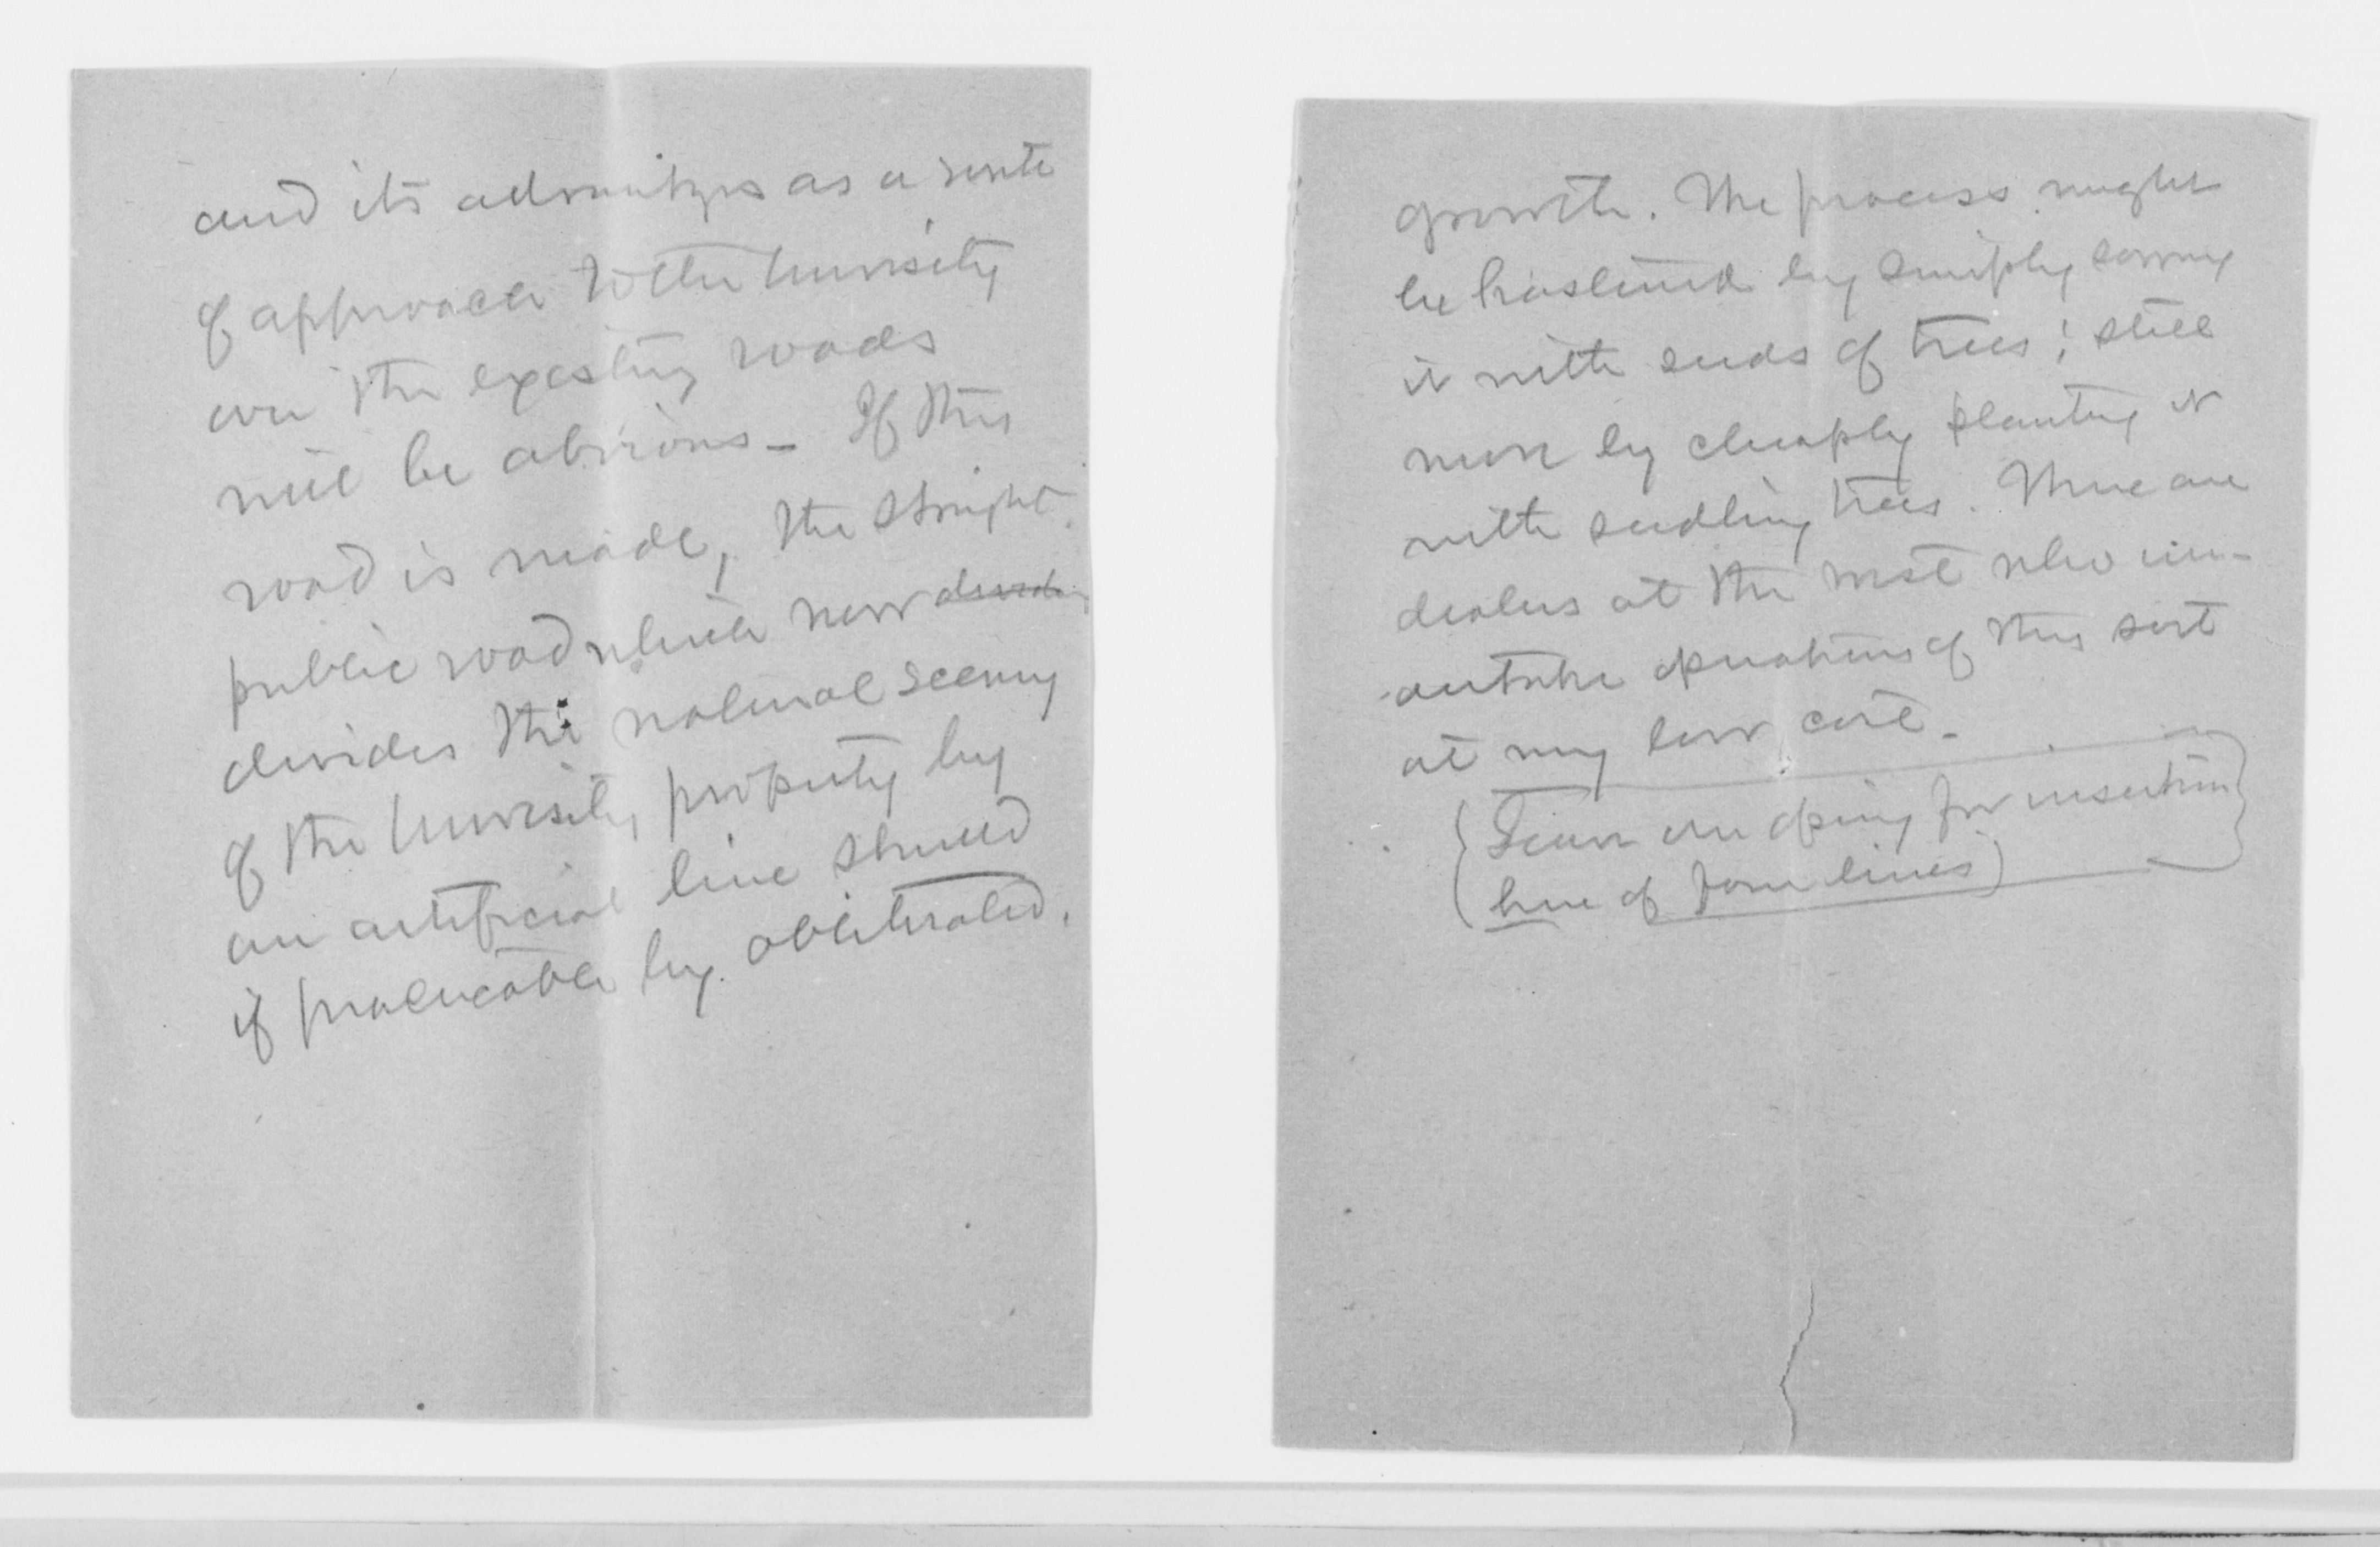 and its advantages as a route
of approach to the University
over the existing roads
will be obvious - If this
road is made, the straight
public road which now
divides the natural scenery
of the University property by
an artificial line should
if practicable be obliterated.
growth. The process might
be hastened by simply sowing
it with seeds of trees; still
more by cheaply planting it
with seedling trees. There are
dealers at the West who un-
dertake operations of this sort
at very low cost.
Leave an opening for insertion
here of four lines)